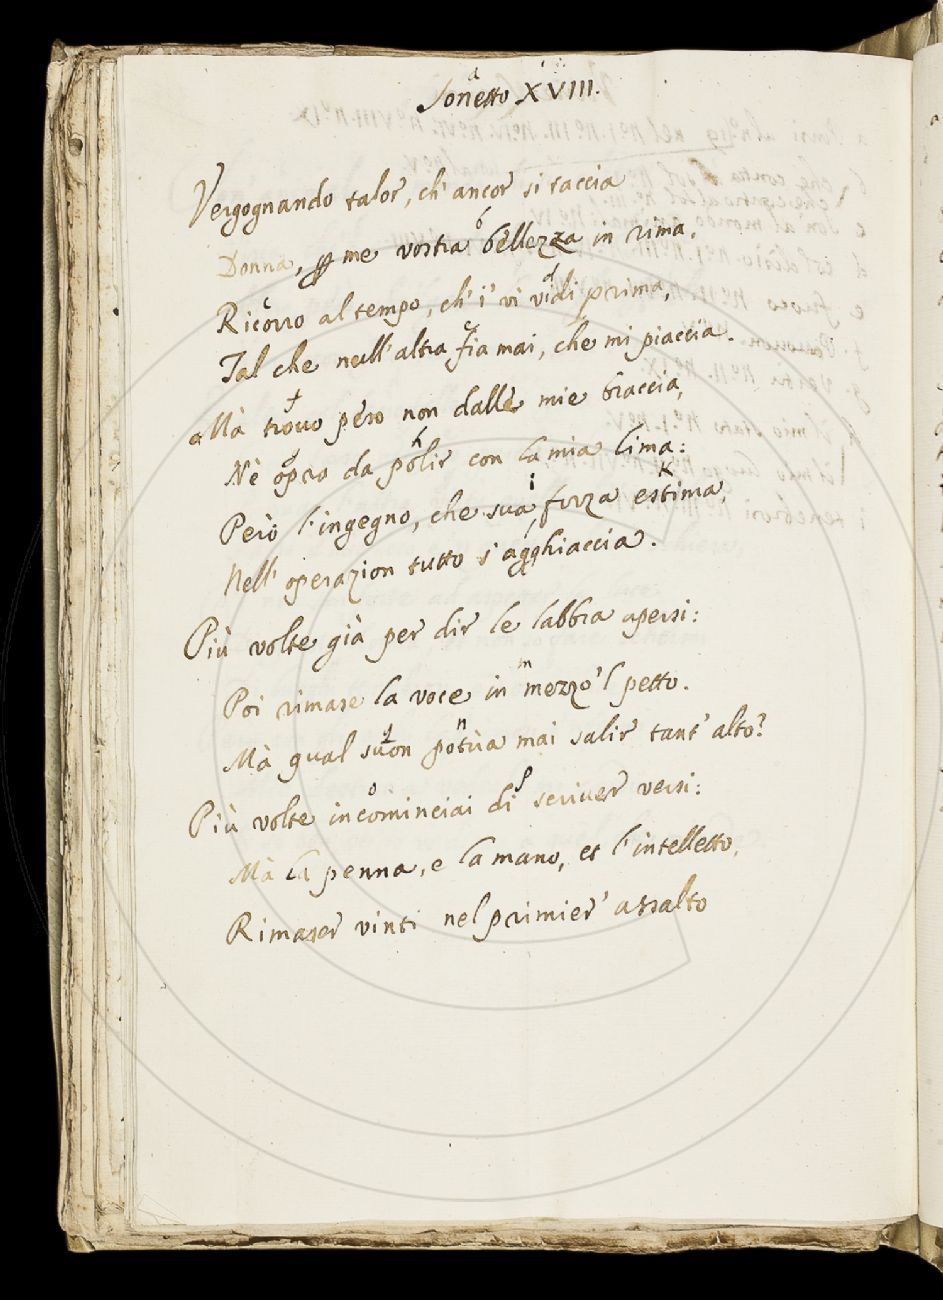 Sonetto XVIII.
Vergognando talor, ch' ancor si taccia
Donna, p me vostra bellezza in rima,
Ricorro al tempo, ch' i' vi vidi prima,
Tal che null' altra fia mai, che mi piaccia.
Mà trovo pero non dalle mie braccia,
Nè opra da polir con la mia lima:
Però l'ingegno, che sua forza estima,
Nell' operazion tutto s' agghiaccia.
Più volte già per dir le labbra apersi:
Poi rimase la voce in mezzo 'l petto.
Mà qual suon potria mai salir tant' alto?
Più volte incominciai di scriver versi:
Mà la penna, e la mano, et l'intelletto,
Rimaser vinti nel primier' assalto